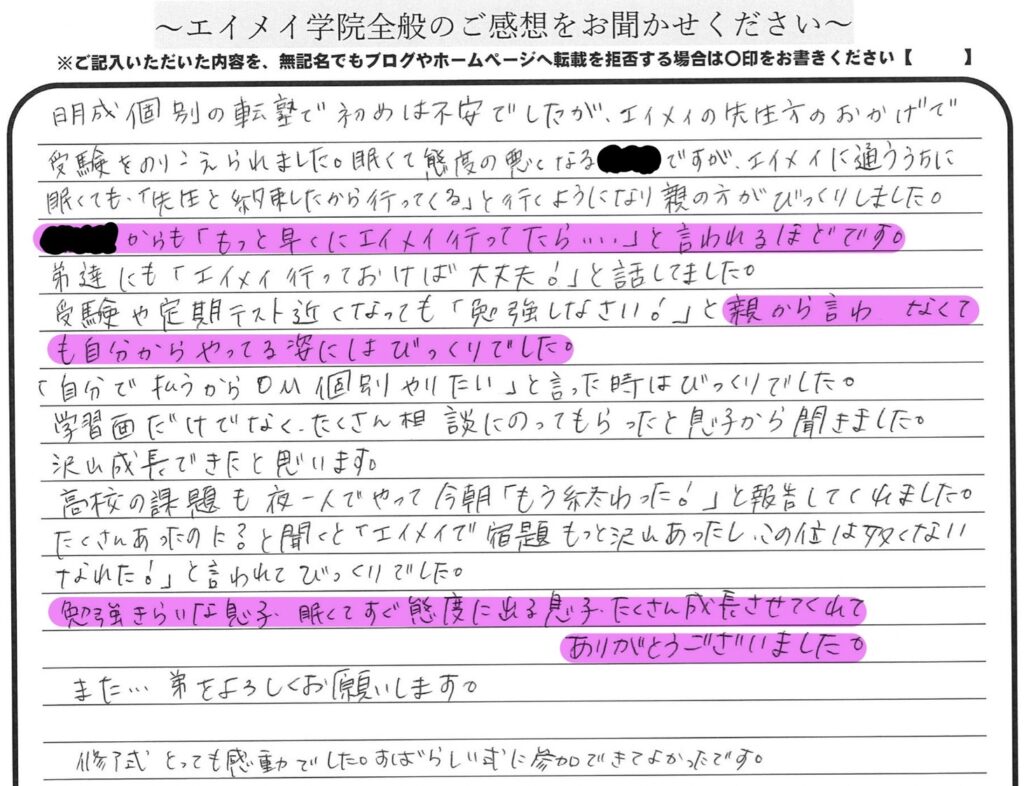 ～エイメイ学院全般のご感想をお聞かせください～
※ご記入いただいた内容を、無記名でもブログやホームページへ転載を拒否する場合は〇印をお書きください【　　】
明成個別の転塾で初めは不安でしたが、エイメイの先生方のおかげで
受験をのりこえられました。眠くて態度の悪くなるですが、エイメイに通ううちに
眠くても、「先生と約束したから行ってくる」と行くようになり親の方がびっくりしました。
からも「もっと早くにエイメイ行ってたら‥‥」と言われるほどです。
弟達にも「エイメイ行っておけば大丈夫!」と話してました。
受験や定期テスト近くなっても「勉強しなさい!」と親から言わなくて
も自分からやってる姿にはびっくりでした。
「自分で払うからDM個別やりたい」と言った時はびっくりでした。
学習面だけでなく、たくさん相談にのってもらったと息子から聞きました。
沢山成長できたと思います。
高校の課題も夜一人でやって今朝「もう終わった!」と報告してくれました。
たくさんあったのに?と聞くと「エイメイで宿題もっと沢山あったし、この位は多くない
なれた!」と言われてびっくりでした。
勉強きらいな息子、眠くてすぐ態度に出る息子、たくさん成長させてくれて
ありがとうございました。
また… 弟をよろしくお願いします。
修了式 とっても感動でした。すばらしい式に参加できてよかったです。